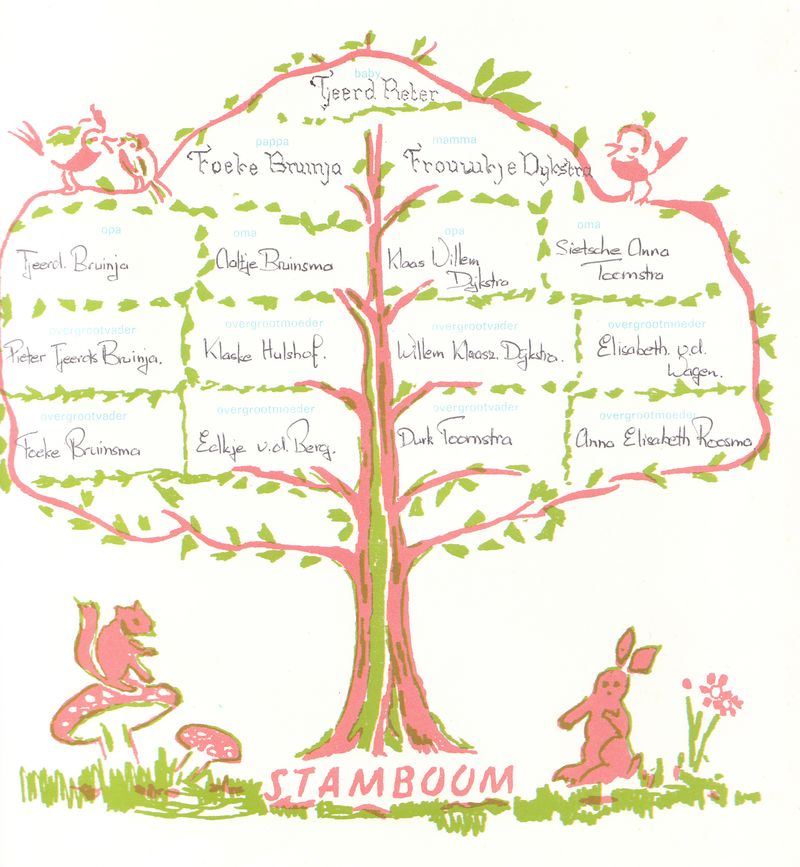 baby
Tjeerd Pieter
pappa mamma
Foeke Bruinja Frouwkje Dijkstra
opa oma opa oma
Tjeerd. Bruinja Aaltje Bruinsma Klaas Willem Dijkstra Sietsche Anna Toornstra
overgrootvader overgrootmoeder overgrootvader overgrootmoeder
Pieter Tjeerds Bruinja. Klaske Hulshof. Willem Klaasz. Dijkstra. Elisabeth v.d. Wagen.
overgrootvader overgrootmoeder overgrootvader overgrootmoeder
Foeke Bruinsma Eelkje v.d. Berg. Durk Toornstra Anna Elisabeth Roosma
STAMBOOM